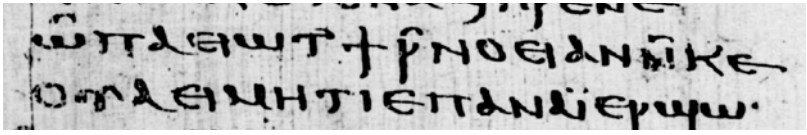 ⲱ̂ⲡⲁⲉⲓⲱⲧ ϯⲣ̄ⲛⲟⲉⲓⲁⲛⲛ̄ⲕⲉ
ⲟⲩⲁⲉⲓⲙⲏⲧⲓⲉⲡⲁⲛⲁⲓ̈ⲉⲣϣⲱ·